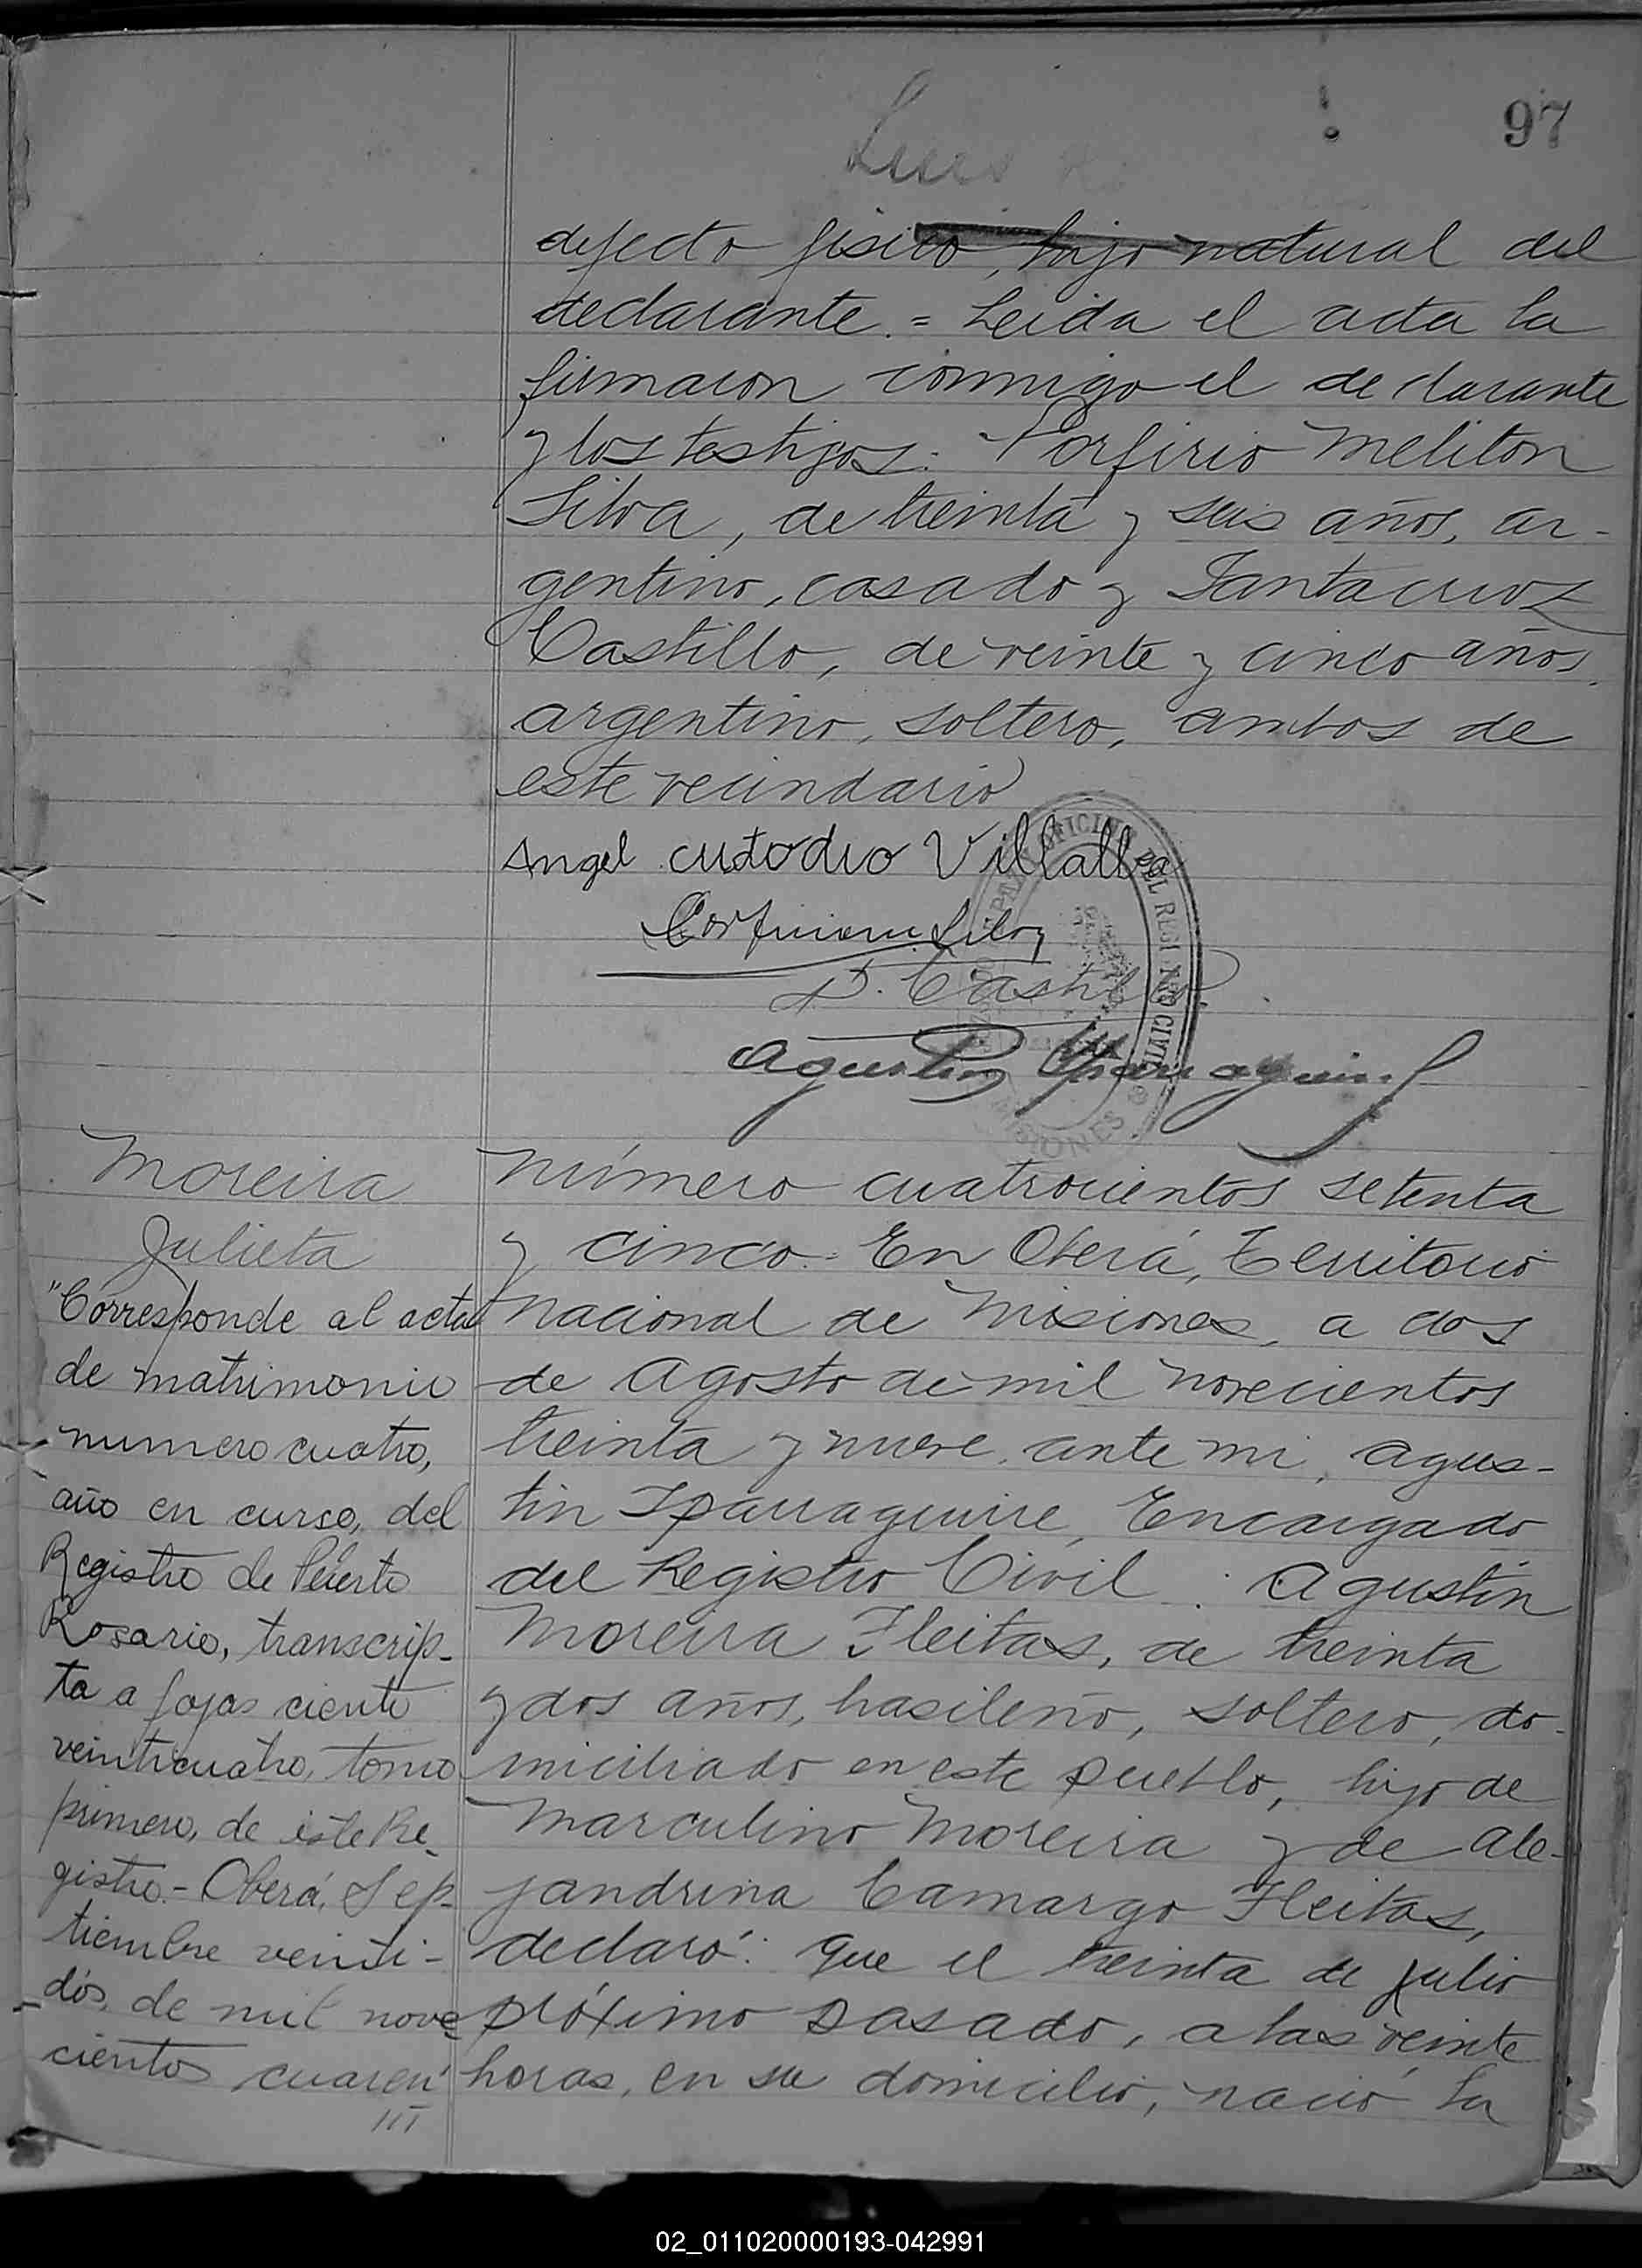 97
Luis
defecto fisico, hijo natural del
declarante. = Leida el acta la
firmaron conmigo el declarante
y los testigos: Porfirio Meliton
Silva, de treinta y seis años, ar-
gentino, casado y Santacruz
Castillo, de veinte y cinco años,
argentino, soltero, ambos de
este vecindario
Angel cutodio Villalba
S. Castillo
Agustin Yparraguirre
OFICINA DEL REGISTRO CIVIL
MISIONES
Moreira
Julieta
"Corresponde al acta
de matrimonio
numero cuatro,
año en curso, del
Registro de Puerto
Rosario, transcrip-
ta a fojas ciento
veinticuatro, tomo
primero, de este Re-
gistro.- Oberá, Sep-
tiembre veinti-
dós, de mil nove
cientos cuaren
///
Número cuatrocientos setenta
y cinco. En Oberá, Territorio
Nacional de Misiones, a dos
de Agosto de mil novecientos
treinta y nueve, ante mi, Agus-
tin Iparraguirre, Encargado
del Registro Civil: Agustín
Moreira Fleitas, de treinta
y dos años, brasileño, soltero, do-
miciliado en este pueblo, hijo de
Marculino Moreira y de Ale-
jandrina Camargo Fleitas,
declaró: Que el treinta de julio
próximo pasado, a las veinte
horas, en su domicilio, nació la
02_011020000193-042991